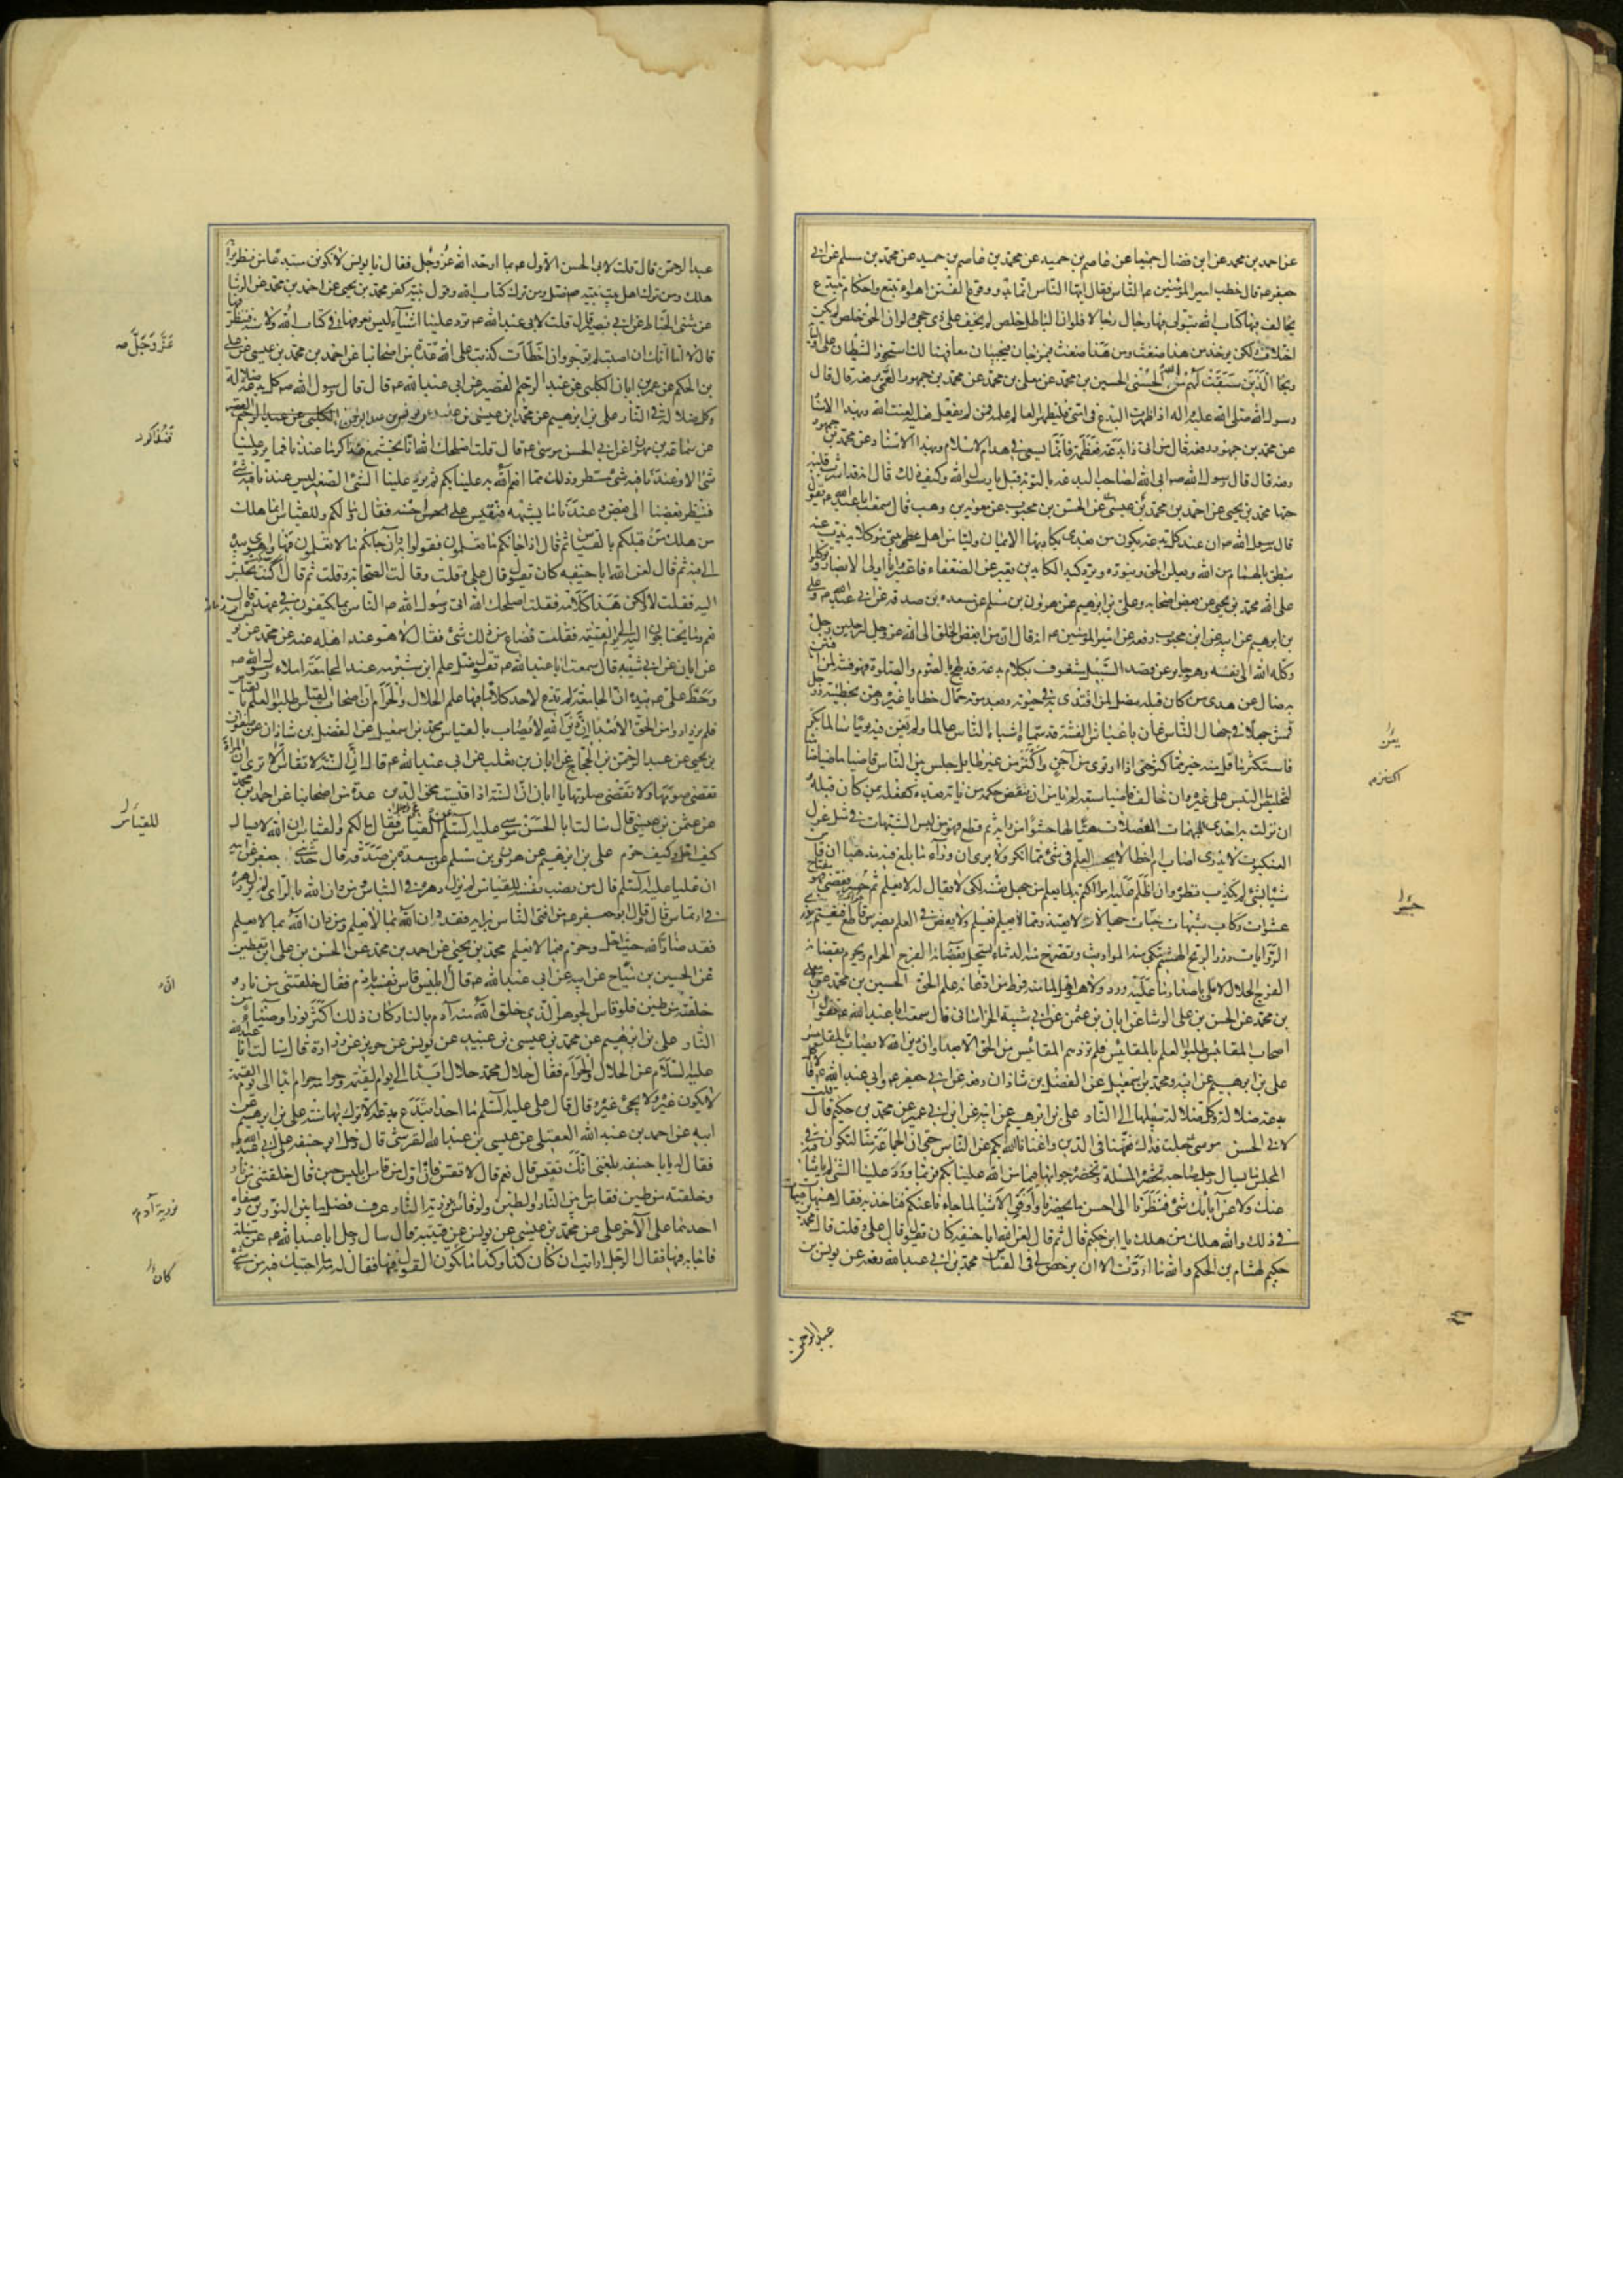 عن احمد بن محمد عن ابن فضال جميعا عن عاصم بن حميد عن محمد بن مسلم عن ابى
جعفر ع قال خطب امير المؤمنين ع الناس فقال ايها الناس انما بدو وقوع الفتن اهواء تتبع واحكام تبتدع
يخالف فيها كتاب الله يتولى فيها رجال رجالا فلو ان الباطل خلص لم يخف على ذى حجى ولو ان الحق خلص لم يكن
اختلاف ولكن يوخذ من هذا ضغث ومن هذا ضغث فيمزجان فيجيئان معا فهنالك استحوذ الشيطان على اوليائه
ونجا الذين سبقت لهم من الله الحسنى الحسين بن محمد عن معلى بن محمد عن محمد بن جمهور العمى رفعه قال قال
رسول الله صلى الله عليه واله اذا ظهرت البدع فى امتى فليظهر العالم علمه فمن لم يفعل فعليه لعنة الله وبهذا الاسناد
عن محمد بن جمهور رفعه قال من اتى ذا بدعة فعظمه فانما يسعى فى هدم الاسلام وبهذا الاسناد عن محمد بن جمهور
رفعه قال قال رسول الله ص ابى الله لصاحب البدعة بالتوبة قيل يا رسول الله وكيف ذلك قال انه قد اشرب قلبه
حبها محمد بن يحيى عن احمد بن محمد بن عيسى عن الحسن بن محبوب عن معوية بن وهب قال سمعت ابا عبد الله ع يقول
قال رسول الله ص ان عند كل بدعة يكون من بعدى يكاد بها الايمان وليا من اهل بيتى موكلا به يذب عنه
ينطق بالهام من الله ويعلن الحق وينوره ويرد كيد الكايدين يعبر عن الضعفاء فاعتبروا يا اولى الابصار وتوكلوا
على الله محمد بن يحيى عن بعض اصحابه وعلى بن ابرهيم عن هرون بن مسلم عن مسعدة بن صدقة عن ابى عبد الله ع وعلى
بن ابرهيم عن ابيه عن ابن محبوب رفعه عن امير المؤمنين ع انه قال ان من ابغض الخلق الى الله عز وجل لرجلين رجل
وكله الله الى نفسه فهو جاير عن قصد السبيل مشعوف بكلام بدعة قد لهج بالصوم والصلوة فهو فتنة لمن افتتن
به ضال عن هدى من كان قبله مضل لمن اقتدى به فى حيوته وبعد موته حمال خطايا غيره رهن بخطيئته ورجل
قمش جهلا فى جهال الناس عان باغباش الفتنة قد سماه اشباه الناس عالما ولم يغن فيه يوما سالما بكر
فاستكثر ما قل منه خير مما كثر حتى اذا ارتوى من آجن واكتنز من غير طايل جلس بين الناس قاضيا ماضيا ضامنا
لتخليص ما التبس على غيره وان خالف قاضيا سبقه لم يامن ان ينقض حكمه من ياتى بعده كفعله بمن كان قبله
ان نزلت به احدى المبهمات المعضلات هيا لها حشوا من رايه ثم قطع فهو من لبس الشبهات فى مثل غزل
العنكبوت لا يدرى اصاب ام اخطا لا يحسب العلم فى شئ مما انكر ولا يرى ان وراء ما بلغ فيه مذهبا ان قاس
شيئا بشئ لم يكذب نظره وان اظلم عليه امر اكتتم به لما يعلم من جهل نفسه لكى لا يقال له لا يعلم ثم جسر فقضى فهو مفتاح
عشوات ركاب شبهات خباط جهالات لا يعتذر مما لا يعلم فيسلم ولا يعض فى العلم بضرس قاطع فيغنم يذرو
الروايات ذرو الريح الهشيم تبكى منه المواريث وتصرخ منه الدماء يستحل بقضائه الفرج الحرام ويحرم بقضائه
الفرج الحلال لا ملى باصدار ما عليه ورد ولا هو اهل لما منه فرط من ادعائه علم الحق الحسين بن محمد عن معلى
بن محمد عن الحسن بن على الوشا عن ابان بن عثمن عن ابى شيبة الخراسانى قال سمعت ابا عبد الله ع يقول ان
اصحاب المقائيس طلبوا العلم بالمقائيس فلم تزدهم المقائيس من الحق الا بعدا وان دين الله لا يصاب بالمقائيس
على بن ابرهيم عن ابيه ومحمد بن اسمعيل عن الفضل بن شاذان رفعه عن ابى جعفر ع وابى عبد الله ع قالا كل
بدعة ضلالة وكل ضلالة سبيلها الى النار على بن ابرهيم عن ابيه عن ابن ابى عمير عن محمد بن حكيم قال قلت
لابى الحسن موسى ع جعلت فداك فقهنا فى الدين واغنانا الله بكم عن الناس حتى ان الجماعة منا لتكون فى
المجلس ما يسال رجل صاحبه تحضره المسئلة ويحضره جوابها فيما من الله علينا بكم فربما ورد علينا الشئ لم ياتنا فيه
عنك ولا عن آبائك شئ فنظرنا الى احسن ما يحضرنا واوفق الاشياء لما جاءنا عنكم فناخذ به فقال هيهات هيهات
فى ذلك والله هلك من هلك يا ابن حكيم قال ثم قال لعن الله ابا حنيفة كان يقول قال على وقلت قال محمد بن
حكيم لهشام بن الحكم والله ما اردت الا ان يرخص لى فى القياس محمد بن ابى عبد الله رفعه عن يونس بن
عبد الرحمن
عبد الرحمن قال قلت لابى الحسن الاول ع بما اوحد الله عز وجل فقال يا يونس لا تكونن مبتدعا من نظر برايه
هلك ومن ترك اهل بيت نبيه ص ضل ومن ترك كتاب الله وقول نبيه كفر محمد بن يحيى عن احمد بن محمد عن الوشا
عن مثنى الحناط عن ابى بصير قال قلت لابى عبد الله ع ترد علينا اشياء ليس نعرفها فى كتاب الله ولا سنة فننظر فيها
قال لا اما انك ان اصبت لم توجر وان اخطأت كذبت على الله عدة من اصحابنا عن احمد بن محمد بن عيسى عن على
بن الحكم عن عمر بن ابان الكلبى عن عبد الرحيم القصير عن ابى عبد الله ع قال قال رسول الله ص كل بدعة ضلالة
وكل ضلالة فى النار على بن ابرهيم عن محمد بن عيسى بن عبيد عن يونس بن عبد الرحمن
عن سماعة بن مهران عن ابى الحسن موسى ع قال قلت اصلحك الله انا نجتمع فنتذاكر ما عندنا فما يرد علينا
شئ الا وعندنا فيه شئ مسطر وذلك مما انعم الله به علينا بكم ثم يرد علينا الشئ الصغير ليس عندنا فيه شئ
فينظر بعضنا الى بعض وعندنا ما يشبهه فنقيس على احسنه فقال مالكم وللقياس انما هلك
من هلك من قبلكم بالقياس ثم قال اذا جائكم ما تعلمون فقولوا به وان جاءكم ما لا تعلمون فها واهوى بيده
الى فيه ثم قال لعن الله ابا حنيفه كان يقول قال على وقلت وقالت الصحابة وقلت ثم قال اكنت تجلس
اليه فقلت لا ولكن هذا كلامه فقلت اصلحك الله اتى رسول الله ص الناس بما يكتفون به فى عهده قال
نعم وما يحتاجون اليه الى يوم القيمة فقلت فضاع من ذلك شئ فقال لا هو عند اهله عنه عن محمد عن يونس
عن ابان عن ابى شيبه قال سمعت ابا عبد الله ع يقول ضل علم ابن شبرمة عند الجامعة املاء رسول الله ص
وخط على ع بيده ان الجامعة لم تدع لاحد كلاما فيها علم الحلال والحرام ان اصحاب القياس طلبوا العلم بالقياس
فلم يزدادوا من الحق الا بعدا ان دين الله لا يصاب بالقياس محمد بن اسمعيل عن الفضل بن شاذان عن صفوان
بن يحيى عن عبد الرحمن بن الحجاج عن ابان بن تغلب عن ابى عبد الله ع قال ان السنة لا تقاس الا ترى ان المراة
تقضى صومها ولا تقضى صلوتها يا ابان ان السنة اذا قيست محق الدين عدة من اصحابنا عن احمد بن محمد
عن عثمن بن عيسى قال سالت ابا الحسن موسى عليه السلم عن القياس فقال مالكم والقياس ان الله لا يسال
كيف احل وكيف حرم على بن ابرهيم عن هرون بن مسلم عن مسعدة بن صدقة قال حدثنى جعفر عن ابيه
ان عليا عليه السلم قال من نصب نفسه للقياس لم يزل دهره فى التباس ومن دان الله بالراى لم يزل دهره
فى ارتماس قال وقال ابو جعفر ع من افتى الناس برايه فقد دان الله بما لا يعلم ومن دان الله بما لا يعلم
فقد ضاد الله حيث احل وحرم فيما لا يعلم محمد بن يحيى عن احمد بن محمد عن الحسن بن على بن يقطين
عن الحسين بن مياح عن ابيه عن ابى عبد الله ع قال ان ابليس قاس نفسه بادم فقال خلقتنى من نار و
خلقته من طين فلو قاس الجوهر الذى خلق الله منه آدم بالنار كان ذلك اكثر نورا وضياء من
النار على بن ابرهيم عن محمد بن عيسى بن عبيد عن يونس عن حريز عن زرارة قال سالت ابا عبد الله
عليه السلام عن الحلال والحرام فقال حلال محمد حلال ابدا الى يوم القيمة وحرامه حرام ابدا الى يوم القيمة
لا يكون غيره ولا يجئ غيره وقال قال على عليه السلم ما احد ابتدع بدعة الا ترك بها سنة على بن ابرهيم عن
ابيه عن احمد بن عبد الله العقيلى عن عيسى بن عبد الله القرشى قال دخل ابو حنيفه على ابى عبد الله ع
فقال له يابا حنيفه بلغنى انك تقيس قال نعم قال لا تقس فان اول من قاس ابليس حين قال خلقتنى من نار
وخلقته من طين فقاس ما بين النار والطين ولو قاس نورية النار عرف فضل ما بين النورين وصفاء
احدهما على الآخر على عن محمد بن عيسى عن يونس عن قتيبه قال سال رجل ابا عبد الله ع عن مسئلة
فاجابه فيها فقال الرجل ارايت ان كان كذا وكذا ما يكون القول فيها فقال له مه ما اجبتك فيه من شئ
عز وجل صه
للقياس
نورية آدم
كان
جسر